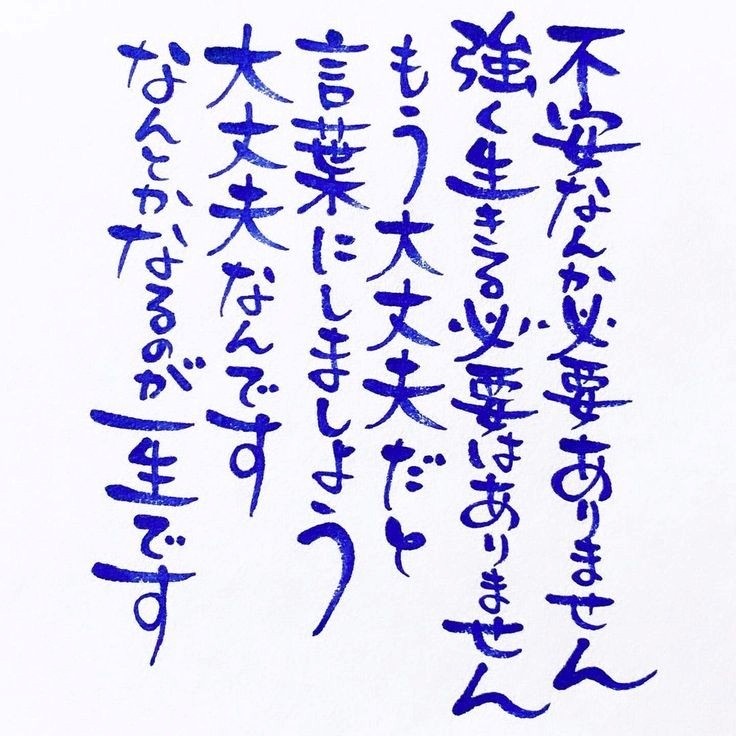 不安なんか必要ありません
強く生きる必要はありません
もう大丈夫だと
言葉にしましょう
大丈夫なんです
なんとかなるのが一生です